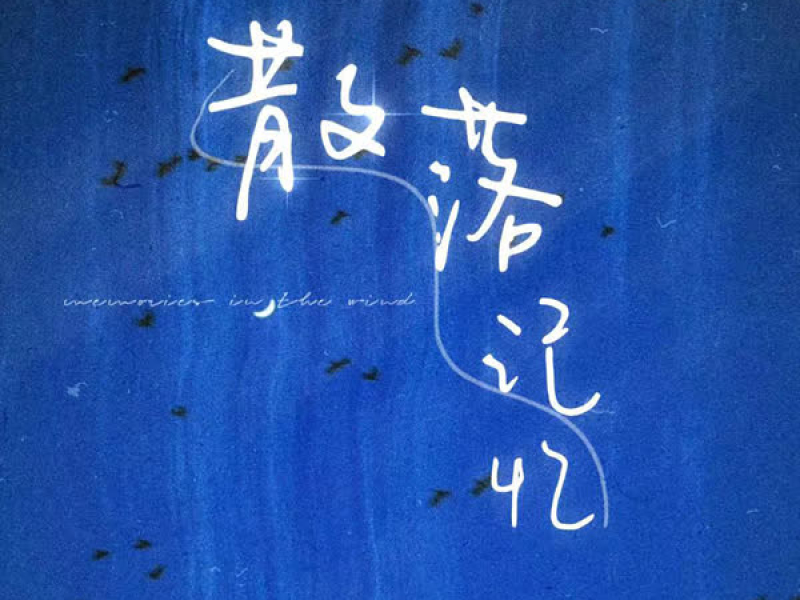 散落记忆
memories in the wind